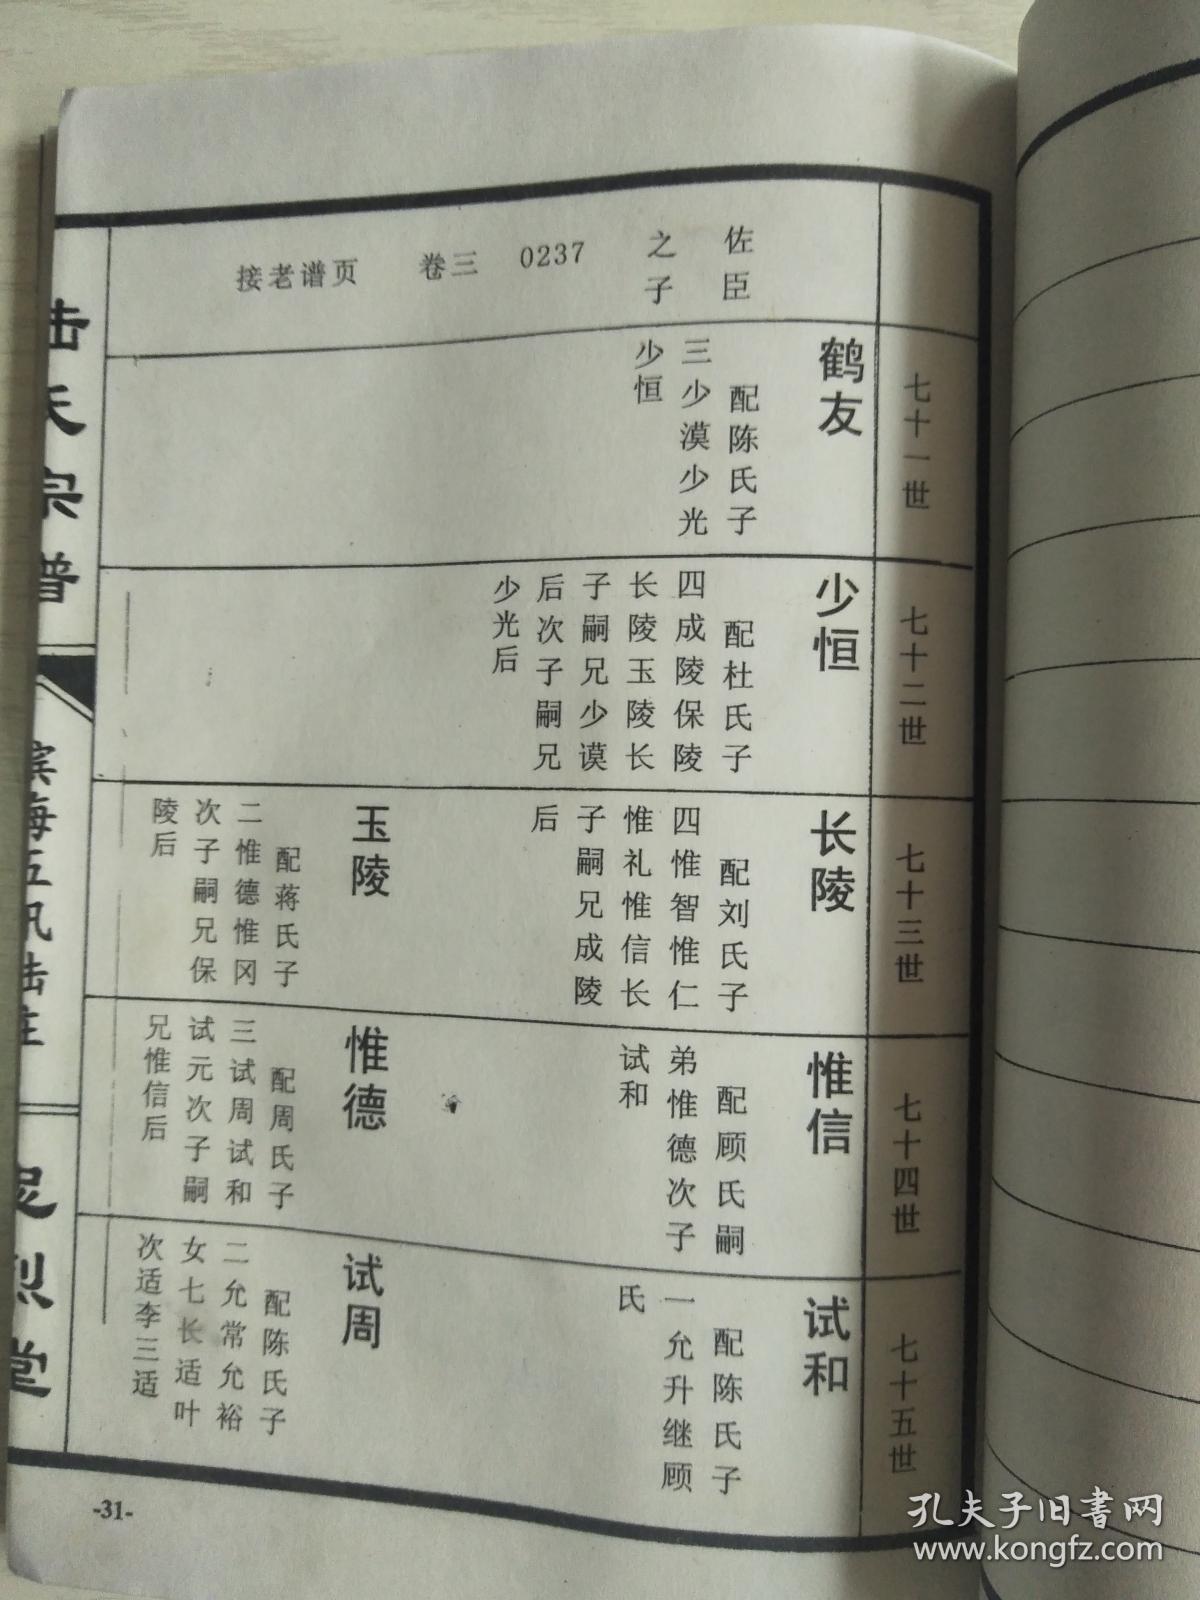 佐臣
之子
0237
卷三
接老谱页
七十一世
鹤友
配陈氏子
三少漠少光
少恒
七十二世
少恒
配杜氏子
四成陵保陵
长陵玉陵长
子嗣兄少谟
后次子嗣兄
少光后
七十三世
长陵
配刘氏子
四惟智惟仁
惟礼惟信长
子嗣兄成陵
后
玉陵
配蒋氏子
二惟德惟冈
次子嗣兄保
陵后
七十四世
惟信
配顾氏嗣
弟惟德次子
试和
惟德
配周氏子
三试周试和
试元次子嗣
兄惟信后
七十五世
试和
配陈氏子
一允升继顾
氏
试周
配陈氏子
二允常允裕
女七长适叶
次适李三适
陆氏宗谱
滨海五汛陆庄
忠烈堂
-31-
孔夫子旧书网
www.kongfz.com